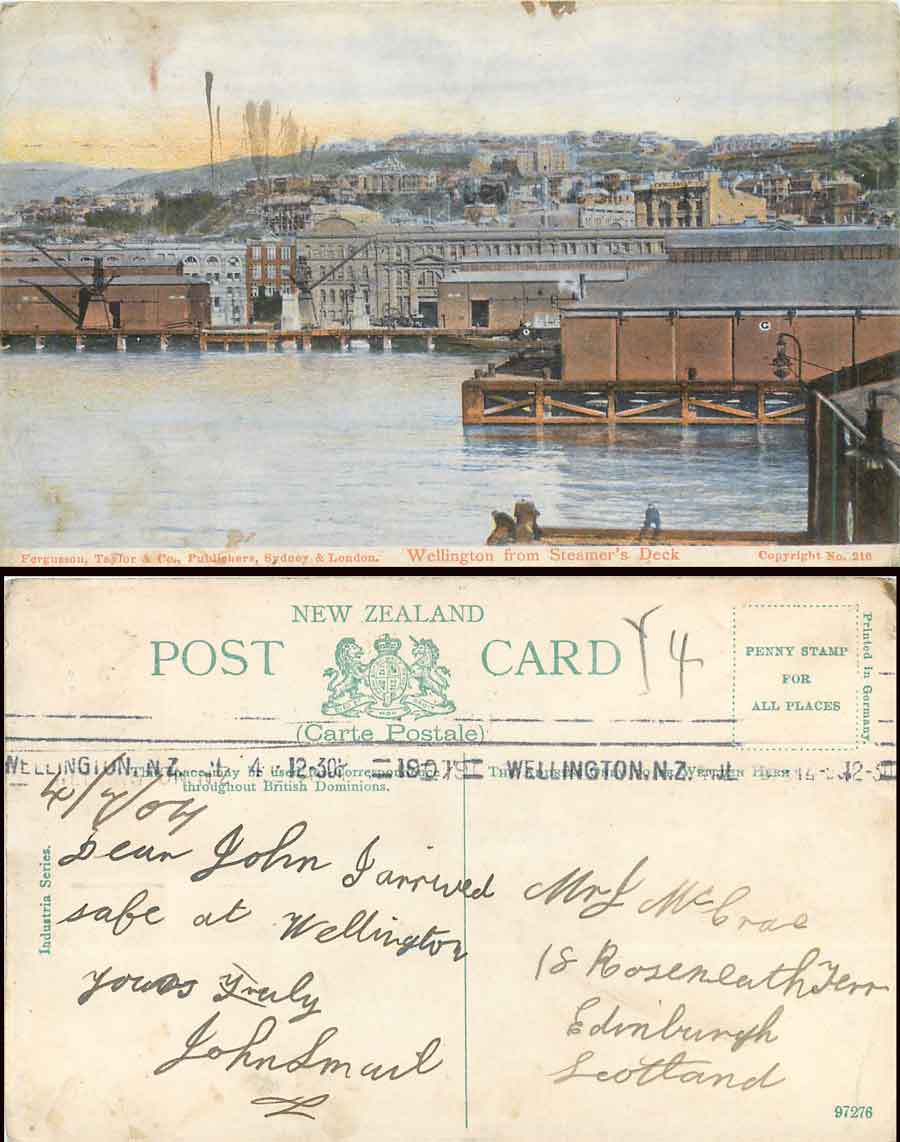 Fergusson, Taylor & Co., Publishers, Sydney & London. Wellington from Steamer's Deck Copyright No. 216
C
NEW ZEALAND
POST CARD
(Carte Postale)
Y4
PENNY STAMP
FOR
ALL PLACES
Printed in Germany.
WELLINGTON, N.Z. JL 4 12-30 WELLINGTON, N.Z. JL 4 12-30
This space may be used for Correspondence
throughout British Dominions.
The Address Only to be Written Here
Industria Series.
Dear John I arrived
safe at Wellington
yours Truly
John Smail
Mr J McCrae
18 Roseneath Terr
Edinburgh
Scotland
97276